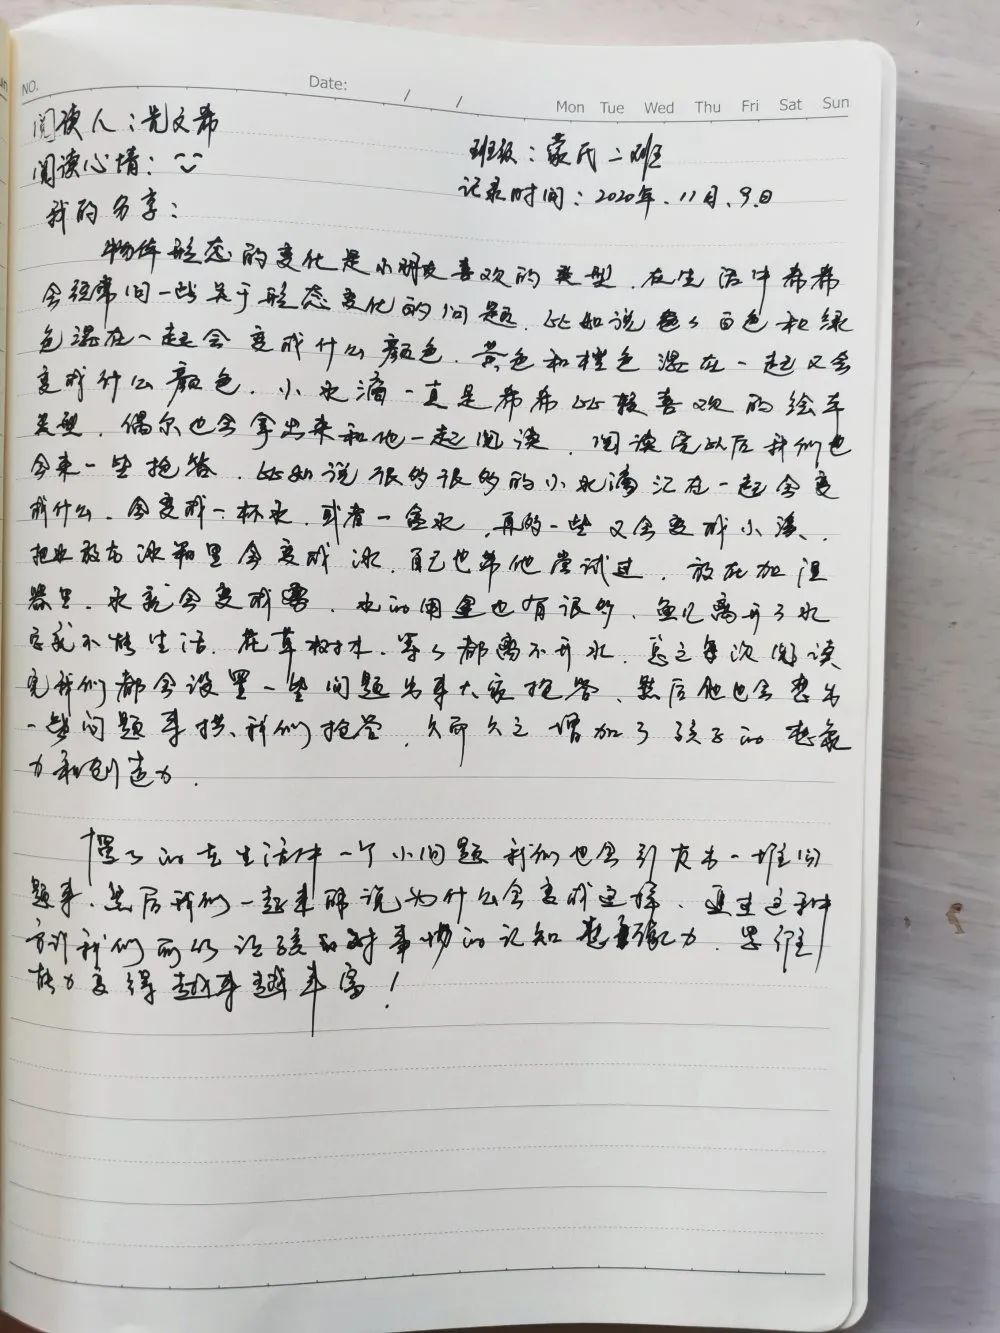 NO.
Date: / /
Mon Tue Wed Thu Fri Sat Sun
阅读人：先文希
班级：蒙氏二班
阅读心情：
记录时间：2020年.11月.9.日
我的分享：
物体形态的变化是小朋友喜欢的类型.在生活中希希
会经常问一些关于形态变化的问题.比如说 白色和绿
色混在一起会变成什么颜色.黄色和橙色混在一起又会
变成什么颜色.小水滴一直是希希比较喜欢的绘本
类型.偶尔也会拿出来和他一起阅读.阅读完以后我们也
会来一些抢答.比如说很多很多的小水滴汇在一起会变
成什么.会变成一杯水.或者一盆水.再多一些又会变成小溪、
把水放在冰箱里会变成冰.自己也带他尝试过.放在加湿
器里.水就会变成雾.水的用量也有很多.鱼儿离开了水
它就不能生活.花草树木.等々都离不开水.总之每次阅读
完我们都会设置一些问题出来大家抢答、然后他也会想出
一些问题来 我们抢答.久而久之增加了孩子的想象
力和创造力.
的在生活中一个小问题我们也会引发出一堆问
题来.然后我们一起来解说为什么会变成这样.
我们 让孩子对事物的认知想象力.思维
能力变得越来越丰富！